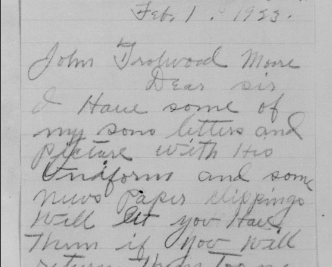 Feb. 1. 1923.
John Trotwood Moore
Dear sir
I Have some of
my sons letters and
picture with His
Uniform and some
news paper clippings
Will let you Have
Them if you Will
return Them Too me